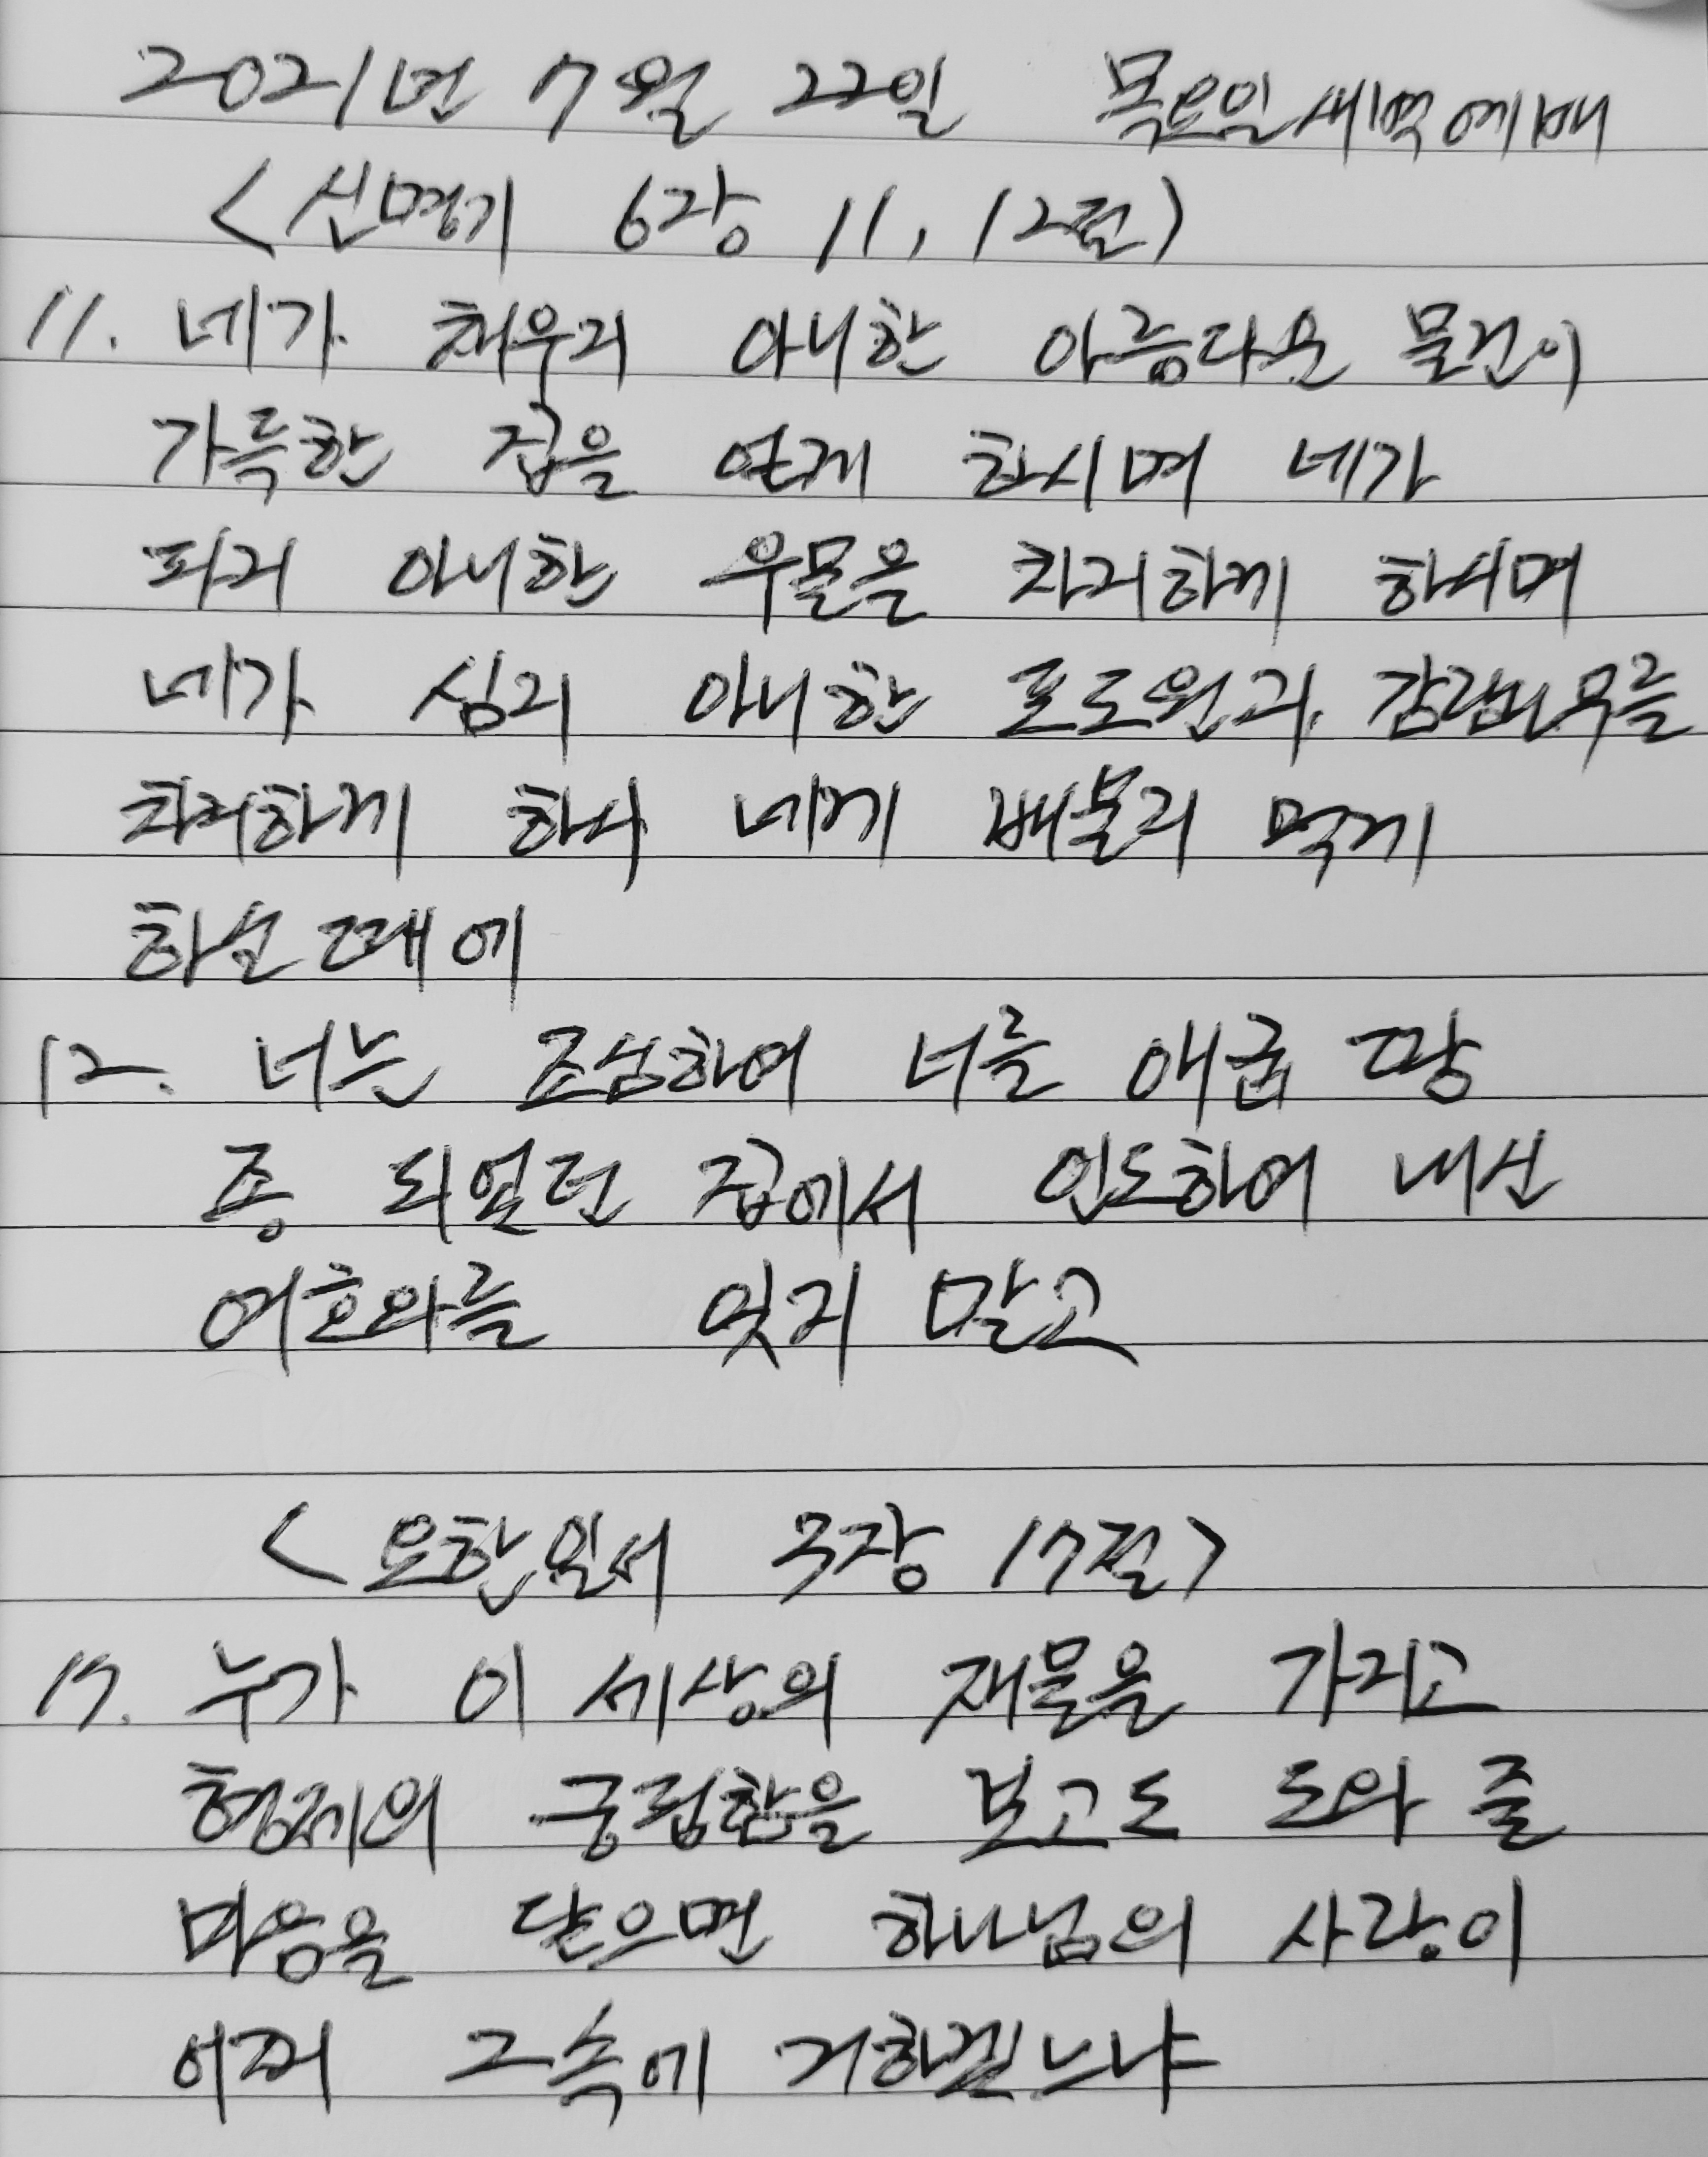 2021년 7월 22일 목요일새벽예배
<신명기 6장 11, 12절>
11. 네가 채우지 아니한 아름다운 물건이
가득한 집을 얻게 하시며 네가
파지 아니한 우물을 차지하게 하시며
네가 심지 아니한 포도원과 감람나무를
차지하게 하사 네게 배불리 먹게
하실 때에
12. 너는 조심하여 너를 애굽 땅
종 되었던 집에서 인도하여 내신
여호와를 잊지 말고
<요한일서 3장 17절>
17. 누가 이 세상의 재물을 가지고
형제의 궁핍함을 보고도 도와 줄
마음을 닫으면 하나님의 사랑이
어찌 그 속에 거하겠느냐